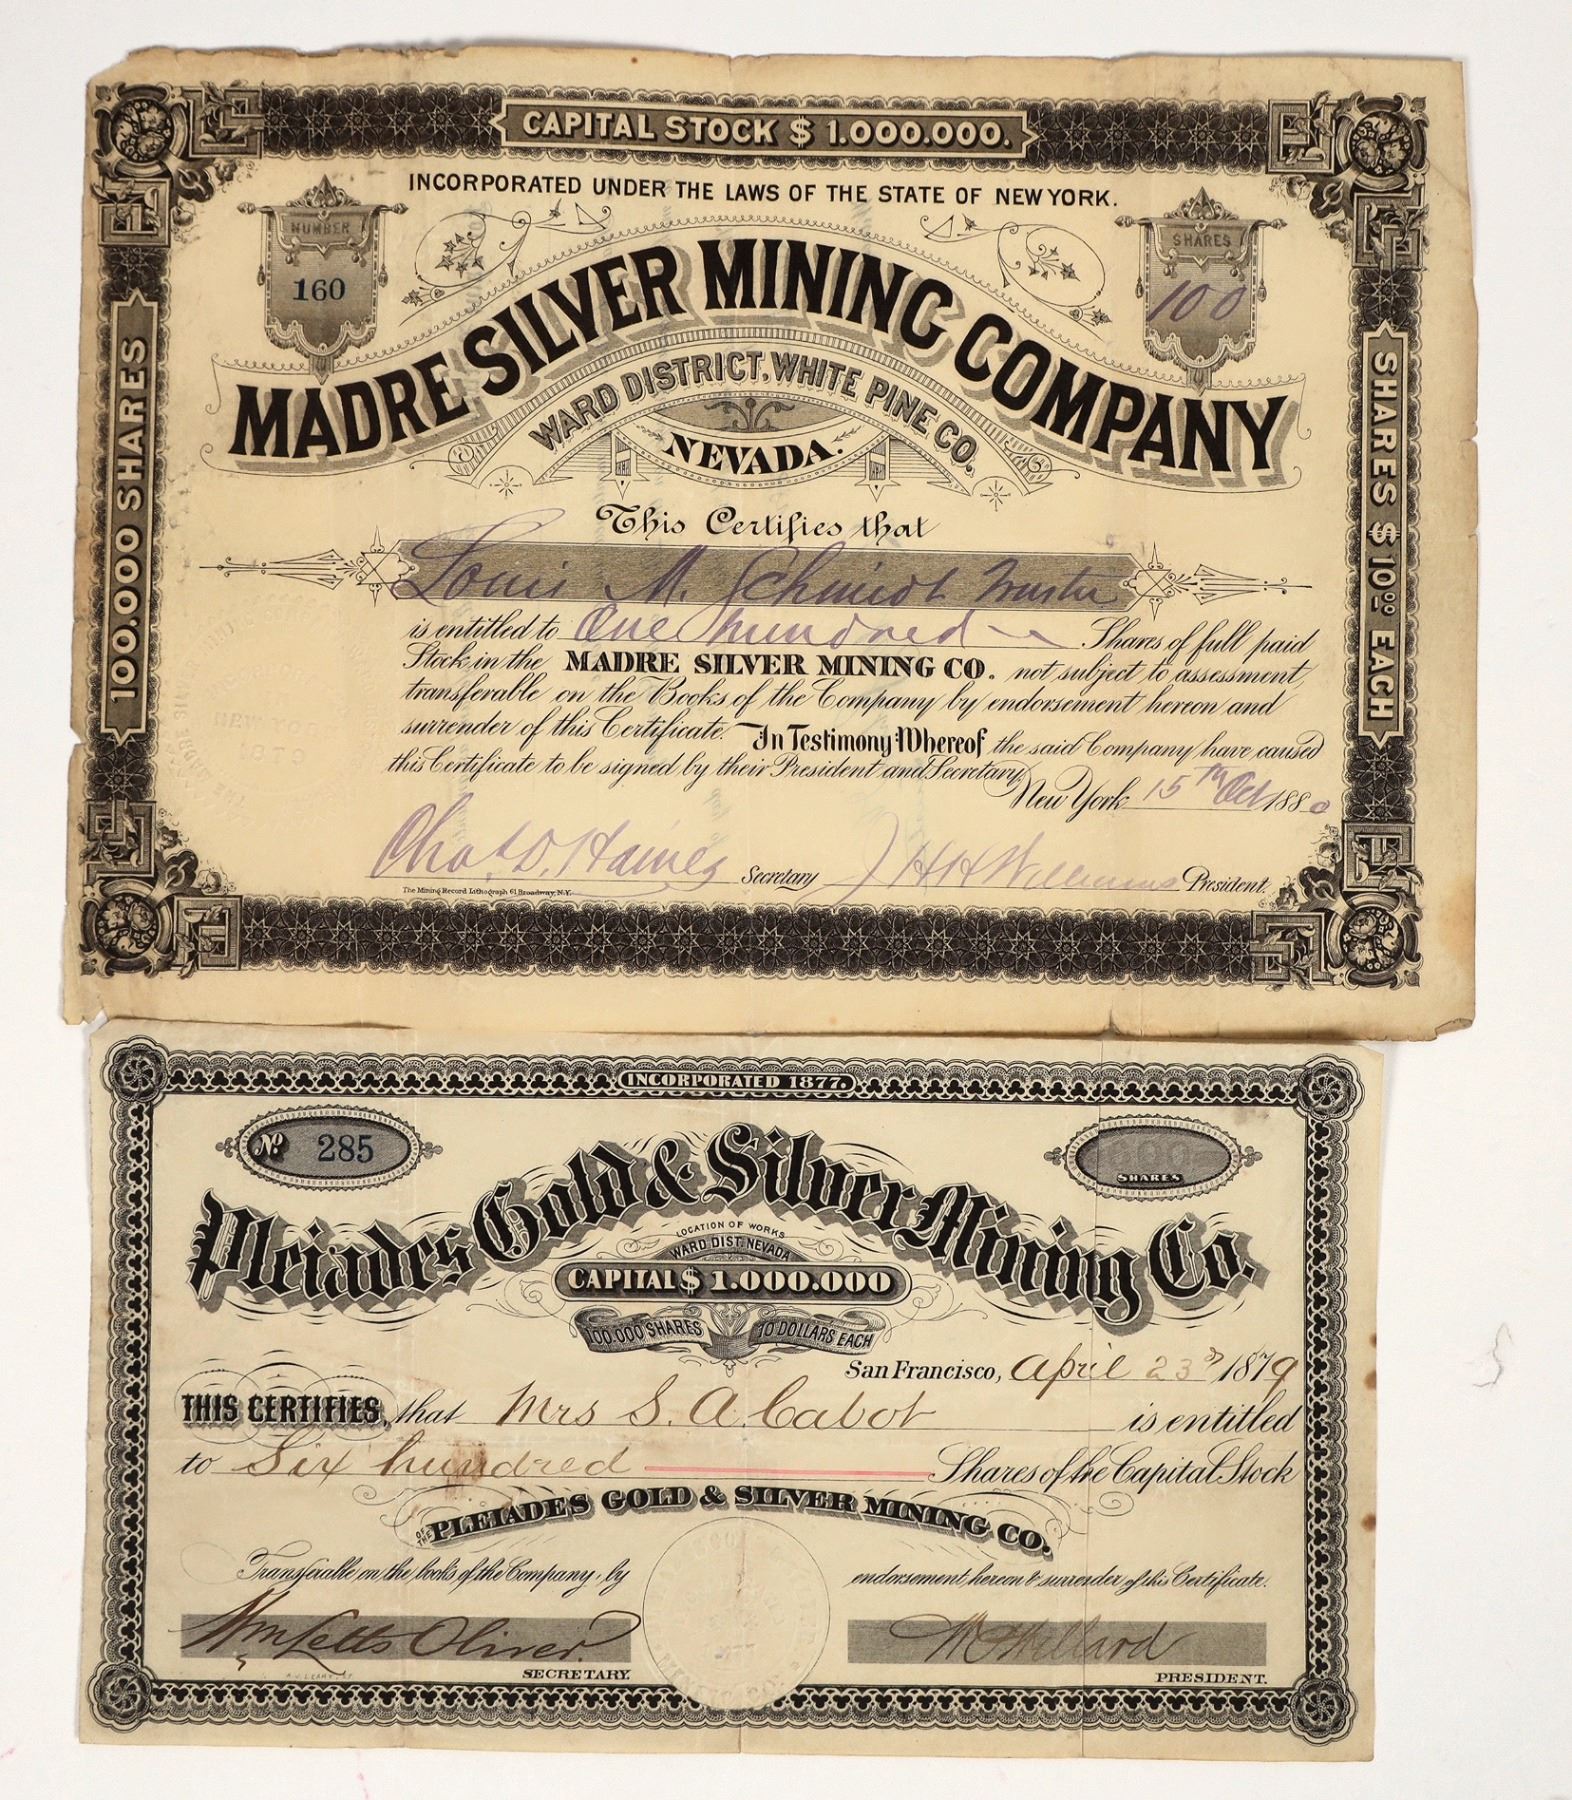 CAPITAL STOCK $ 1.000.000.
INCORPORATED UNDER THE LAWS OF THE STATE OF NEW YORK.
NUMBER
160
SHARES
100
MADRE SILVER MINING COMPANY
WARD DISTRICT, WHITE PINE CO.
NEVADA.
100.000 SHARES
SHARES $ 10.00 EACH
This Certifies that
Louis M. Schmidt Trustee
is entitled to One hundred Shares of full paid
Stock in the MADRE SILVER MINING CO. not subject to assessment,
transferable on the Books of the Company by endorsement hereon and
surrender of this Certificate. In Testimony Whereof the said Company have caused
this Certificate to be signed by their President and Secretary.
New York 15th Oct 1880
NEW YORK
1879
Chas. D. Haines Secretary H H Williams President.
The Mining Record Lithograph 61 Broadway, N.Y.
INCORPORATED 1877.
No. 285
SHARES
Pleiades Gold & Silver Mining Co.
LOCATION OF WORKS
WARD DIST. NEVADA
CAPITAL $ 1.000.000
100.000 SHARES 10 DOLLARS EACH
San Francisco, April 23d 1879
THIS CERTIFIES, that Mrs S. A. Cabot is entitled
to Six hundred Shares of the Capital Stock
OF THE PLEIADES GOLD & SILVER MINING CO.
Transferable on the books of the Company, by endorsement hereon & surrender of this Certificate.
Wm Letts Oliver
SECRETARY.
Willard
PRESIDENT.